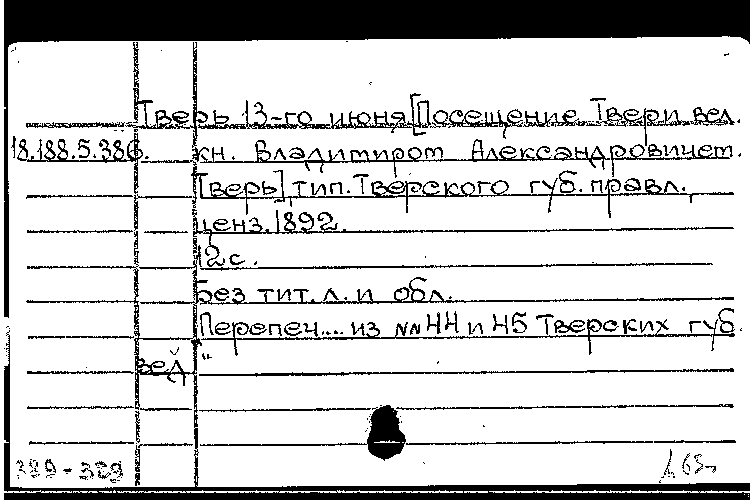 Тверь 13-го июня [Посещение Твери вел.
18.188.5.386. кн. Владимиром Александровичем.
Тверь], тип. Тверского губ. правл.,
ценз. 1892.
12 с.
Без тит. л. и обл.
"Перепеч.... из №№ 44 и 45 Тверских губ.
вед."
389-389